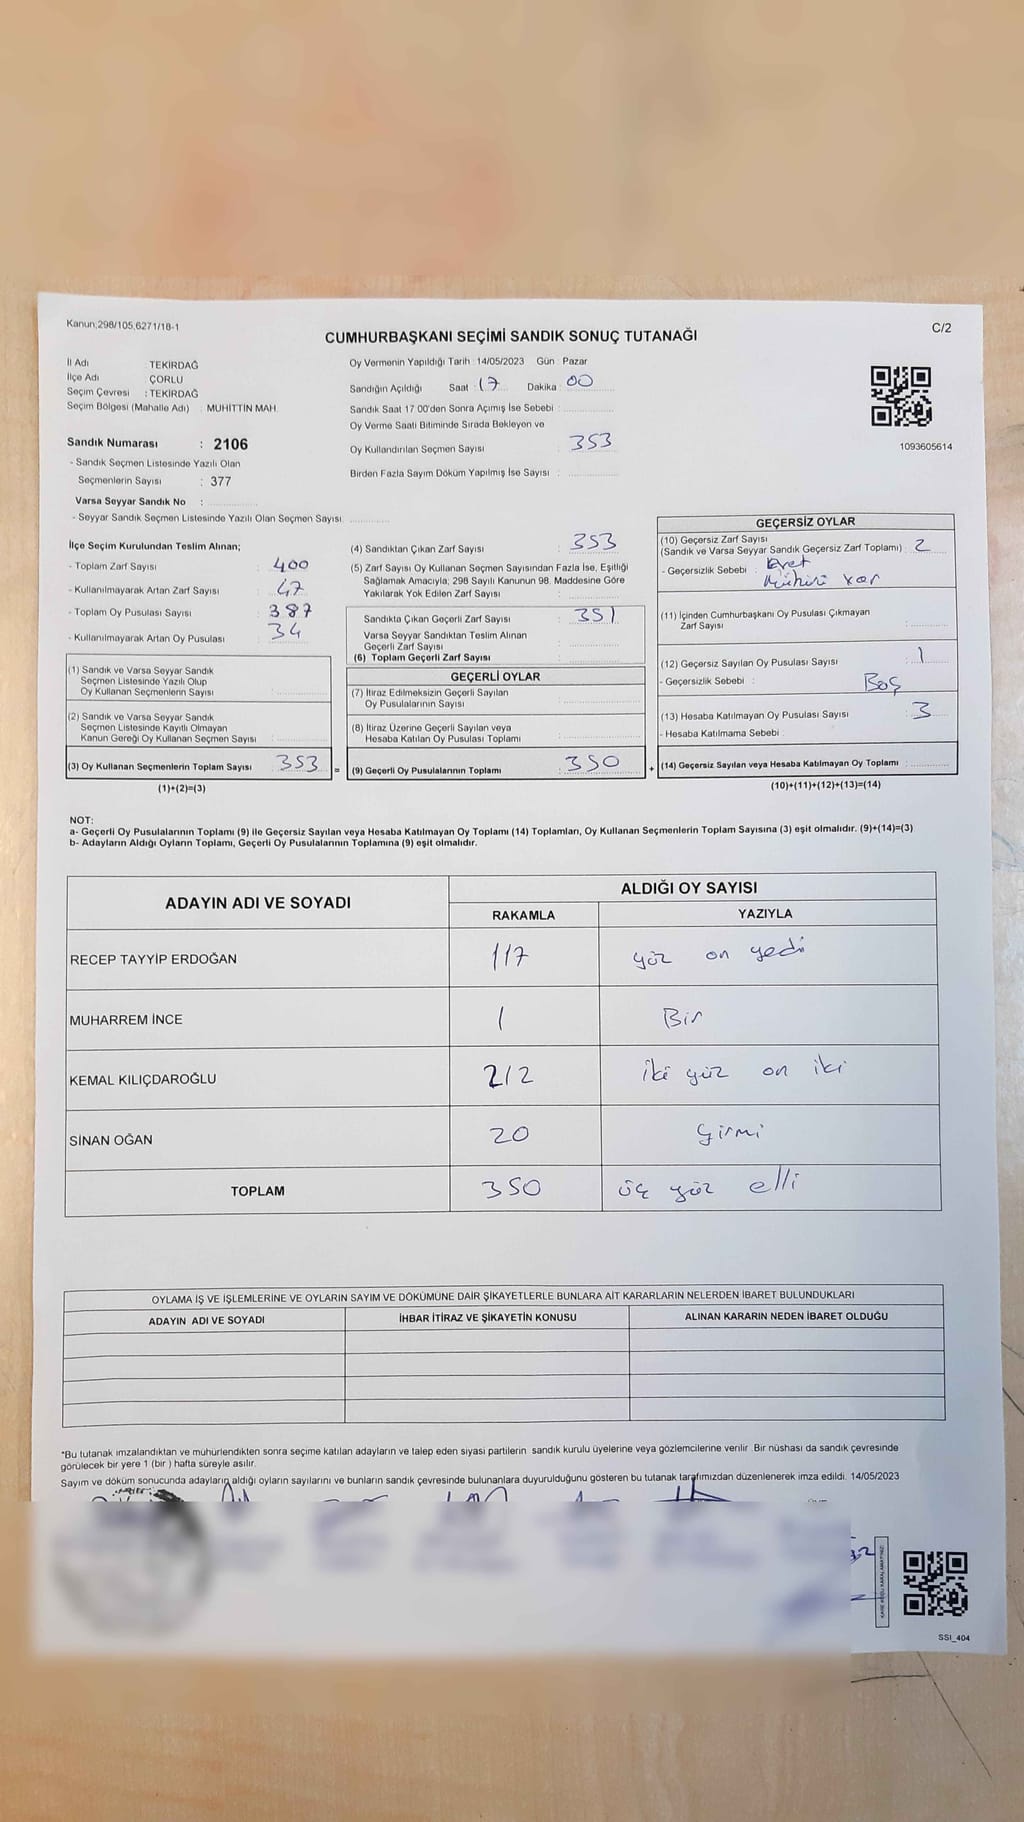 Kanun;298/105,6271/18-1
C/2
CUMHURBAŞKANI SEÇİMİ SANDIK SONUÇ TUTANAĞI
İl Adı TEKİRDAĞ
İlçe Adı ÇORLU
Seçim Çevresi : TEKİRDAĞ
Seçim Bölgesi (Mahalle Adı) : MUHİTTİN MAH.
Sandık Numarası : 2106
- Sandık Seçmen Listesinde Yazılı Olan
Seçmenlerin Sayısı : 377
Varsa Seyyar Sandık No :
- Seyyar Sandık Seçmen Listesinde Yazılı Olan Seçmen Sayısı
Oy Vermenin Yapıldığı Tarih : 14/05/2023 Gün Pazar
Sandığın Açıldığı Saat 17 Dakika 00
Sandık Saat 17 00'den Sonra Açımış İse Sebebi :
Oy Verme Saati Bitiminde Sırada Bekleyon ve
Oy Kullandırılan Seçmen Sayısı 353
Birden Fazla Sayım Döküm Yapılmış İse Sayısı :
1093605614
İlçe Seçim Kurulundan Teslim Alınan;
- Toplam Zarf Sayısı : 400
- Kullanılmayarak Artan Zarf Sayısı : 47
- Toplam Oy Pusulası Sayısı : 387
- Kullanılmayarak Artan Oy Pusulası : 34
(1) Sandık ve Varsa Seyyar Sandık
Seçmen Listesinde Yazılı Olup
Oy Kullanan Seçmenlerin Sayısı :
(2) Sandık ve Varsa Seyyar Sandık
Seçmen Listesinde Kayıtlı Olmayan
Kanun Gereği Oy Kullanan Seçmen Sayısı :
(3) Oy Kullanan Seçmenlerin Toplam Sayısı 353
(1)+(2)=(3)
=
(4) Sandıktan Çıkan Zarf Sayısı : 353
(5) Zarf Sayısı Oy Kullanan Seçmen Sayısından Fazla İse, Eşitliği
Sağlamak Amacıyla; 298 Sayılı Kanunun 98. Maddesine Göre
Yakılarak Yok Edilen Zarf Sayısı :
Sandıkta Çıkan Geçerli Zarf Sayısı : 351
Varsa Seyyar Sandıktan Teslim Alınan
Geçerli Zarf Sayısı :
(6) Toplam Geçerli Zarf Sayısı :
GEÇERLİ OYLAR
(7) İtiraz Edilmeksizin Geçerli Sayılan
Oy Pusulalarının Sayısı :
(8) İtiraz Üzerine Geçerli Sayılan veya
Hesaba Katılan Oy Pusulası Toplamı :
(9) Geçerli Oy Pusulalarının Toplamı : 350
+
GEÇERSİZ OYLAR
(10) Geçersiz Zarf Sayısı
(Sandık ve Varsa Seyyar Sandık Geçersiz Zarf Toplamı) : 2
- Geçersizlik Sebebi : Evet
Mührü var
(11) İçinden Cumhurbaşkanı Oy Pusulası Çıkmayan
Zarf Sayısı :
(12) Geçersiz Sayılan Oy Pusulası Sayısı : 1
- Geçersizlik Sebebi : Boş
(13) Hesaba Katılmayan Oy Pusulası Sayısı : 3
- Hesaba Katılmama Sebebi :
(14) Geçersiz Sayılan veya Hesaba Katılmayan Oy Toplamı :
(10)+(11)+(12)+(13)=(14)
NOT:
a- Geçerli Oy Pusulalarının Toplamı (9) ile Geçersiz Sayılan veya Hesaba Katılmayan Oy Toplamı (14) Toplamları, Oy Kullanan Seçmenlerin Toplam Sayısına (3) eşit olmalıdır. (9)+(14)=(3)
b- Adayların Aldığı Oyların Toplamı, Geçerli Oy Pusulalarının Toplamına (9) eşit olmalıdır.
ADAYIN ADI VE SOYADI ALDIĞI OY SAYISI
RAKAMLA YAZIYLA
RECEP TAYYİP ERDOĞAN 117 yüz on yedi
MUHARREM İNCE 1 Bir
KEMAL KILIÇDAROĞLU 212 iki yüz on iki
SİNAN OĞAN 20 yirmi
TOPLAM 350 üç yüz elli
OYLAMA İŞ VE İŞLEMLERİNE VE OYLARIN SAYIM VE DÖKÜMÜNE DAİR ŞİKAYETLERLE BUNLARA AİT KARARLARIN NELERDEN İBARET BULUNDUKLARI
ADAYIN ADI VE SOYADI İHBAR İTİRAZ VE ŞİKAYETİN KONUSU ALINAN KARARIN NEDEN İBARET OLDUĞU
*Bu tutanak imzalandıktan ve mühürlendikten sonra seçime katılan adayların ve talep eden siyasi partilerin sandık kurulu üyelerine veya gözlemcilerine verilir. Bir nüshası da sandık çevresinde
görülecek bir yere 1 (bir ) hafta süreyle asılır.
Sayım ve döküm sonucunda adayların aldığı oyların sayılarını ve bunların sandık çevresinde bulunanlara duyurulduğunu gösteren bu tutanak tarafımızdan düzenlenerek imza edildi. 14/05/2023
SSI_404